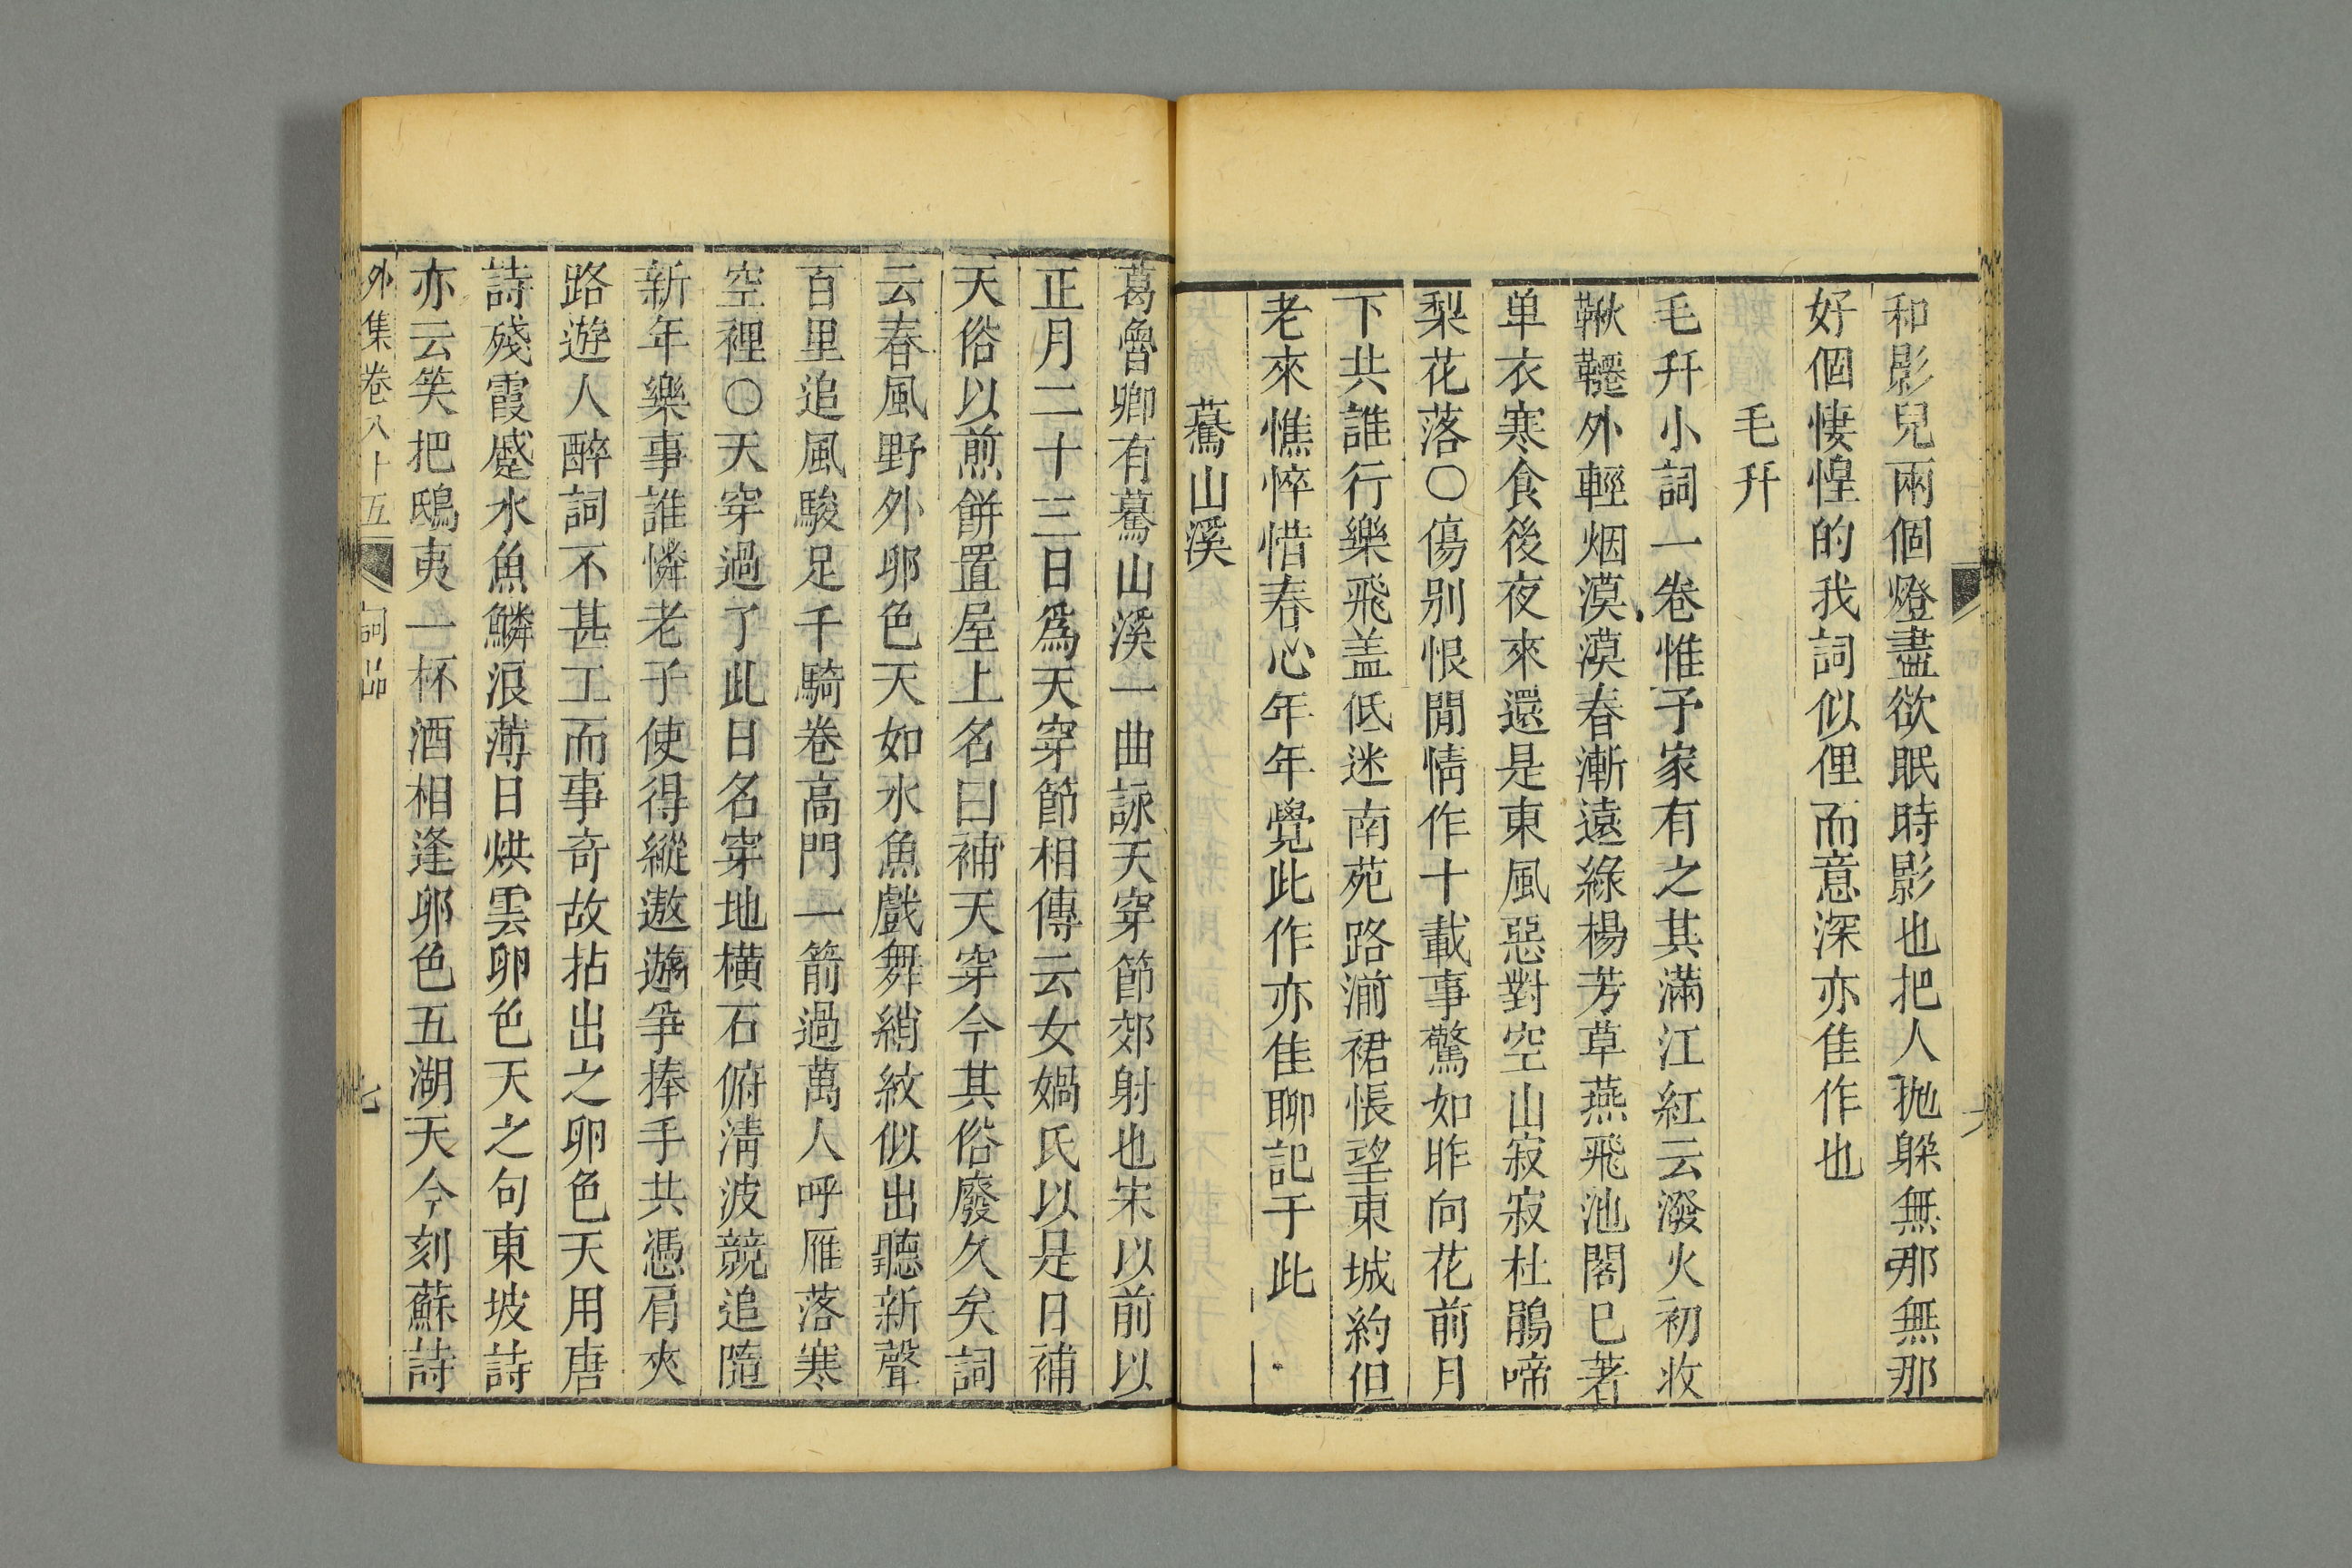 和影兒兩個燈盡欲眠時影也把人抛躲無那無那
好個悽惶的我詞似俚而意深亦佳作也
毛幵
毛幵小詞一卷惟予家有之其滿江紅云潑火初收
鞦韆外輕烟漠漠春漸遠綠楊芳草燕飛池閣巳著
单衣寒食後夜來還是東風惡對空山寂寂杜鵑啼
梨花落○傷别恨閒情作十載事驚如昨向花前月
下共誰行樂飛盖低迷南苑路湔裙悵望東城約但
老來憔悴惜春心年年覺此作亦佳聊記于此
驀山溪
葛魯卿有驀山溪一曲詠天穿節郊射也宋以前以
正月二十三日爲天穿節相傳云女媧氏以是日補
天俗以煎餅置屋上名曰補天穿今其俗廢久矣詞
云春風野外卵色天如水魚戲舞綃紋似出聽新聲
百里追風駿足千騎卷高門一箭過萬人呼雁落寒
空裡○天穿過了此日名穿地橫石俯清波競追隨
新年樂事誰憐老子使得縱遨遊爭捧手共憑肩夾
路遊人醉詞不甚工而事奇故拈出之卵色天用唐
詩殘霞蹙水魚鱗浪薄日烘雲卵色天之句東坡詩
亦云笑把鴟夷一杯酒相逢卵色五湖天今刻蘇詩
外集卷八十五 詞品 七